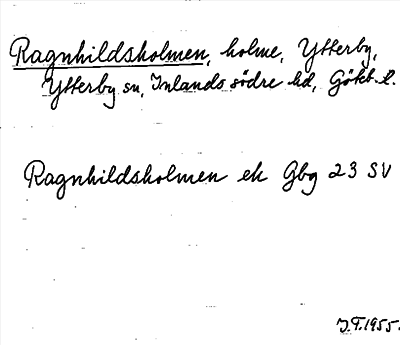 Ragnhildsholmen, holme, Ytterby,
Ytterby sn, Inlands södre hd, Göteb. l.
Ragnhildsholmen ek Gbg 23 SV
J.T. 1955.